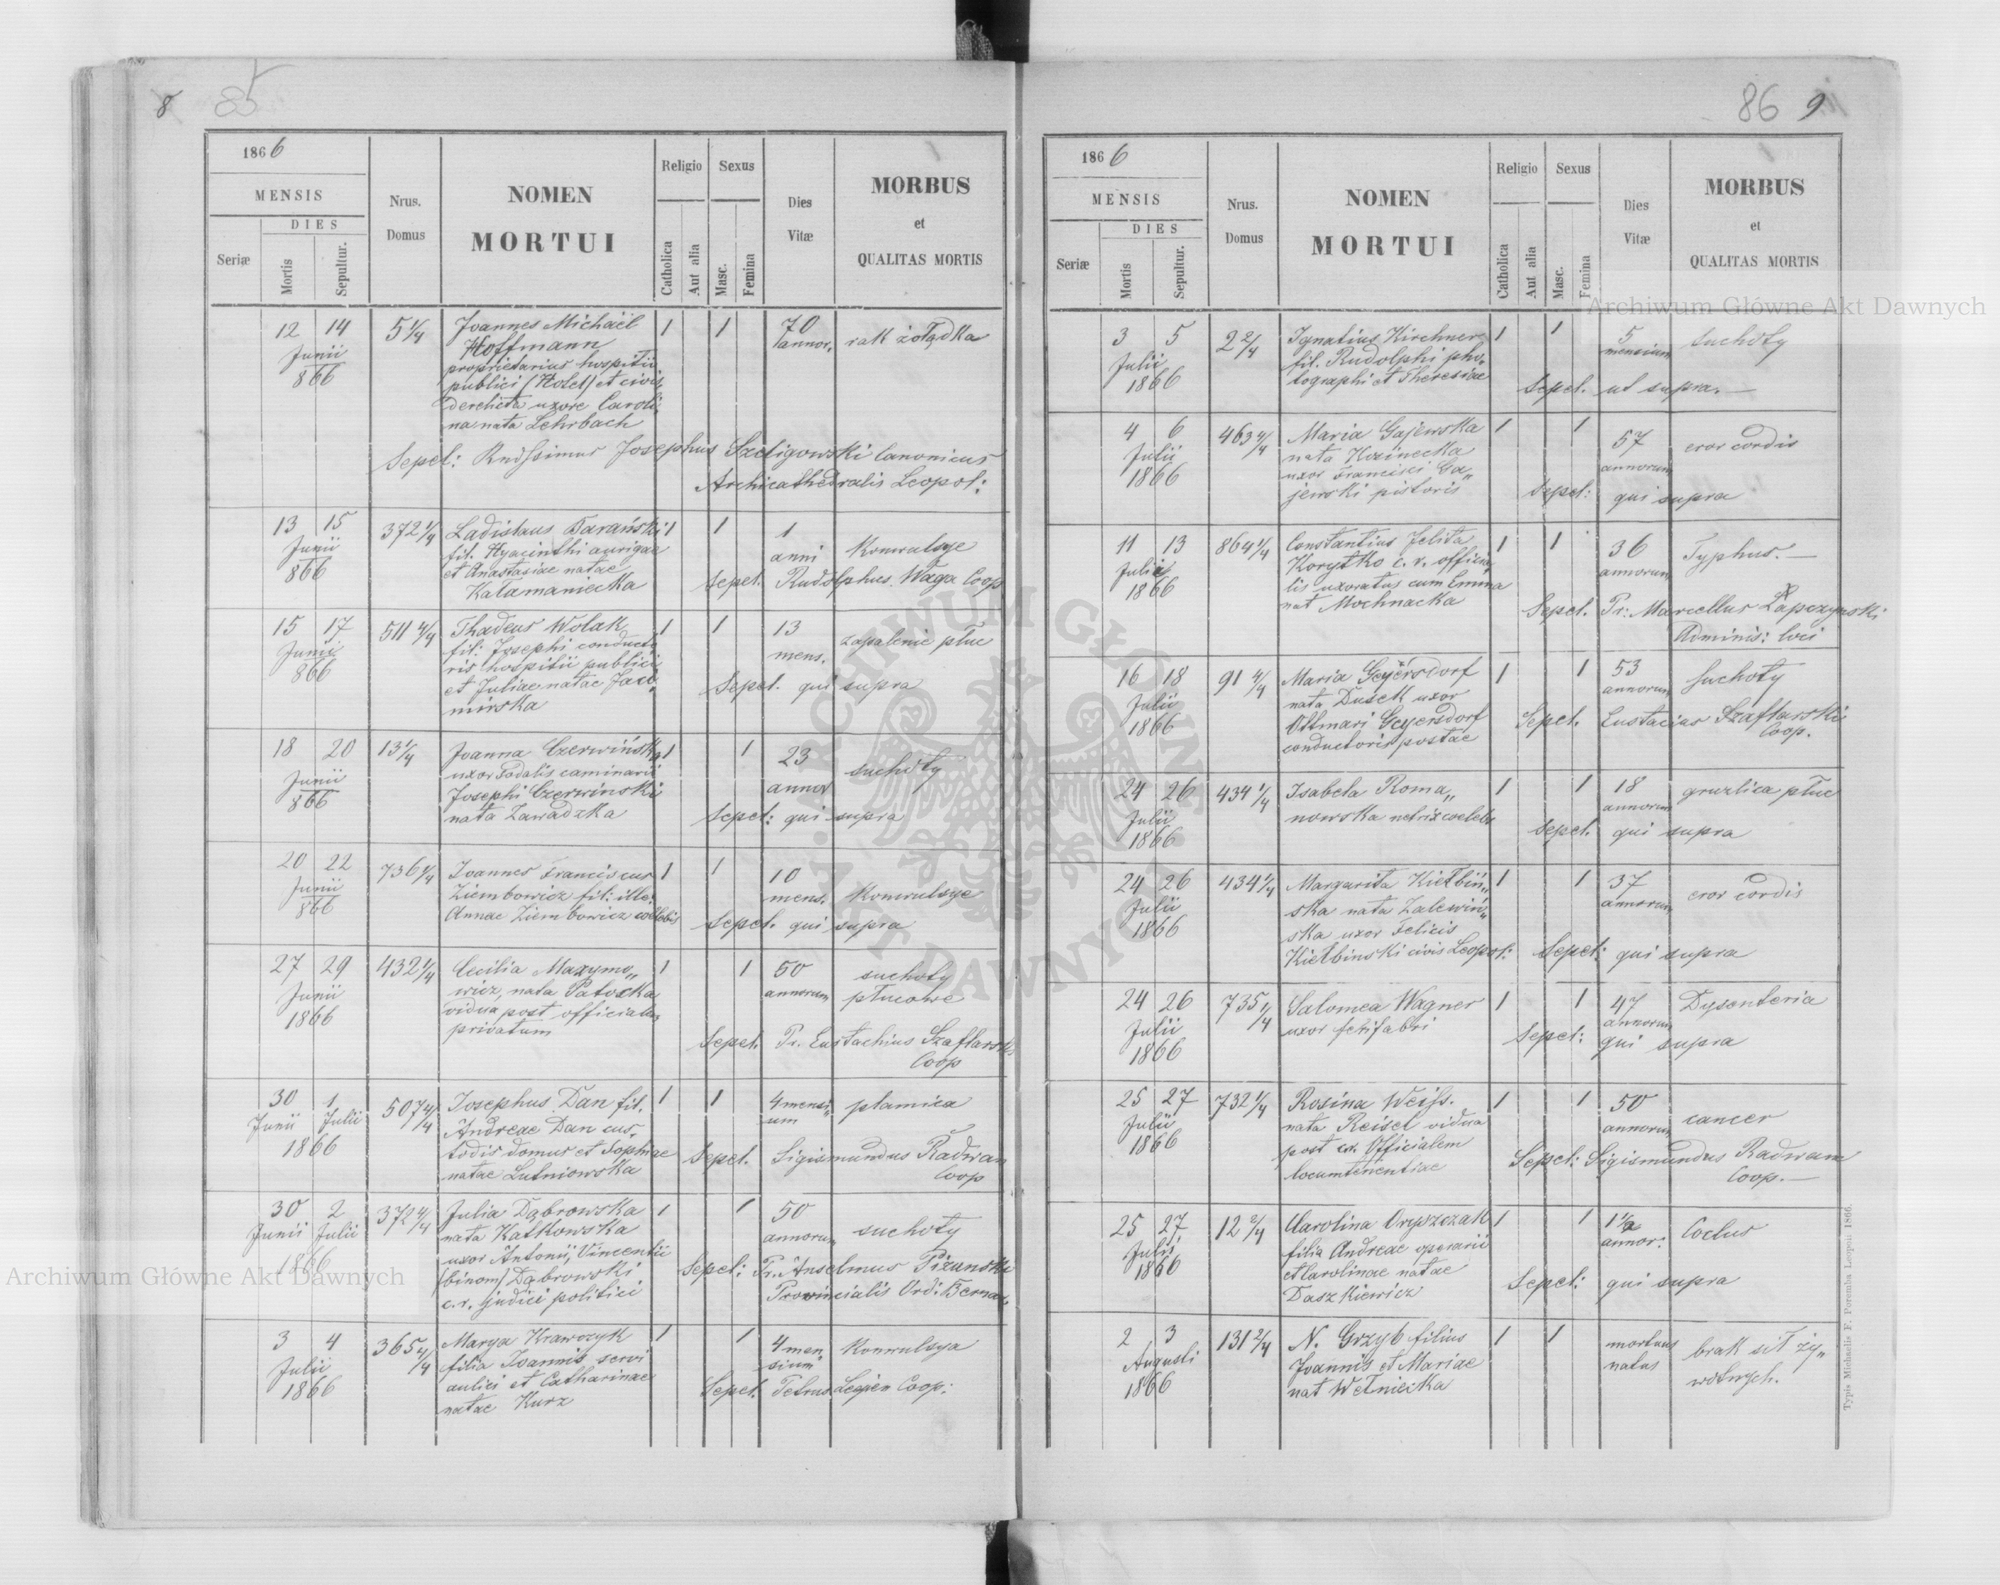 8 85
1866
MENSIS
DIES
Seriæ
Mortis
Sepultur.
Nrus.
Domus
NOMEN
MORTUI
Religio
Catholica
Aut alia
Sexus
Masc.
Femina
Dies
Vitæ
MORBUS
et
QUALITAS MORTIS
12 14 5 1/4 Joannes Michäel 1 1 70 rak żołądka
Junii Hoffmann annor.
866 proprietarius hospitii
publici (Hotel) et civis
derelicta uxore Caroli
na nata Lehrbach
Sepel: Josephus Szeligowski Canonicus
Archicathedralis Leopol:
13 15 372 4/4 Ladislaus Barański 1 1 1 Konwulsye
Junii fil. Hyacinthi aurigae anni
866 et Anastasiae natae Sepel. Rudolphus Waga Coop
Katamaniecka
15 17 511 4/4 Thadeus Wolak 1 1 13 zapalenie płuc
Junii fil: Josephi conducto mens.
866 ris hospitii publici Sepel. qui supra
et Juliae natae Jaci„
mirska
18 20 13 1/4 Joanna Czerwińska 1 1 23 suchoty
Junii uxor Sodalis caminarii annor
866 Josephi Czerwinski Sepel: qui supra
nata Zawadzka
20 22 736 1/4 Joannes Franciscus 1 1 10 Konwulsye
Junii Ziembowicz fil: ille: mens.
866 Annae Ziembowicz coelebis Sepel. qui supra
27 29 432 1/4 Cecilia Maxymo„ 1 1 50 suchoty
Junii wicz, nata Patocka annorum płucowe
1866 vidua post officialem
privatum Sepel. Pr. Eustachius Szaflarski
Coop
30 1 507 4/4 Josephus Dan fil. 1 1 4 mensi„ płamica
Junii Julii Andreae Dan cus„ um
1866 todis domus et Sophiae Sepel. Sigismundus Radwan
natae Lutniowska Coop
30 2 372 4/4 Julia Dąbrowska 1 1 50 suchoty
Junii Julii nata Katkowska annorum
1866 uxor Antonii, Vincentii Sepel: Pr. Anselmus
(binom) Dąbrowski Provincialis Ord: Bernar.
c.r. judici politici
3 4 365 4/4 Marya Krawczyk 1 1 4 men Konwulsya
Julii filia Joannis servi sium
1866 aulici et Catharinae Sepel. Petrus Coop:
natae Kurz
86 9
1866
MENSIS
DIES
Seriæ
Mortis
Sepultur.
Nrus.
Domus
NOMEN
MORTUI
Religio
Catholica
Aut alia
Sexus
Masc.
Femina
Dies
Vitæ
MORBUS
et
QUALITAS MORTIS
3 5 2 2/4 Ignatius Kirchner 1 1 5 suchoty
Julii fil. Rudolphi pho„ mensium
1866 tographi et Theresiae Sepel. ut supra.
4 6 463 4/4 Maria Gajewska 1 1 57 eror cordis
Julii nata annorum
1866 uxor Francisci Ga„ Sepel: qui supra
jewski pistoris
11 13 864 1/4 Constantius Jelita 1 1 36 Typhus.
Julii Korytko c. r. officia annorum
1866 lis uxoratus cum Emma Sepel. Pr: Marcellus Łapczynski
nat Mochnacka Adminis: loci
16 18 91 4/4 Maria Geyersdorf 1 1 53 suchoty
Julii nata Dusek uxor annorum
1866 Ottmari Geyersdorf Sepel. Eustacius Szaflarski
conductoris postae Coop.
24 26 434 1/4 Isabela Roma„ 1 1 18 gruzlica płuc
Julii nowska netrix coelebs annorum
1866 Sepel. qui supra
24 26 434 1/4 Margarita Kiełbiń„ 1 1 37 eror cordis
Julii ska nata Zalewiń„ annorum
1866 ska uxor Felicis
Kiełbinski civis Leopol: Sepel: qui supra
24 26 735 1/4 Salomea Wagner 1 1 47 Dysenteria
Julii uxor ferifabri annorum
1866 Sepel: qui supra
25 27 732 1/4 Rosina Weiss. 1 1 50 cancer
Julii nata Reisel vidua annorum
1866 post cr. Officialem Sepel: Sigismundus Radwan
locumtenentiae Coop.
25 27 12 2/4 Carolina 1 1 1 1/2 Coctus
Julii filia Andreae operarii annor:
1866 et Carolinae natae Sepel: qui supra
Daszkiewicz
2 3 131 2/4 N. Grzyb filius 1 1 mortuus brak sił ży„
Augusti Joannis et Mariae natus wotnych.
1866 nat Wetniecka
Typis Michaelis F. Poremba Leopoli 1866.
Archiwum Główne Akt Dawnych
Archiwum Główne Akt Dawnych
ARCHIWUM GŁÓWNE AKT DAWNYCH